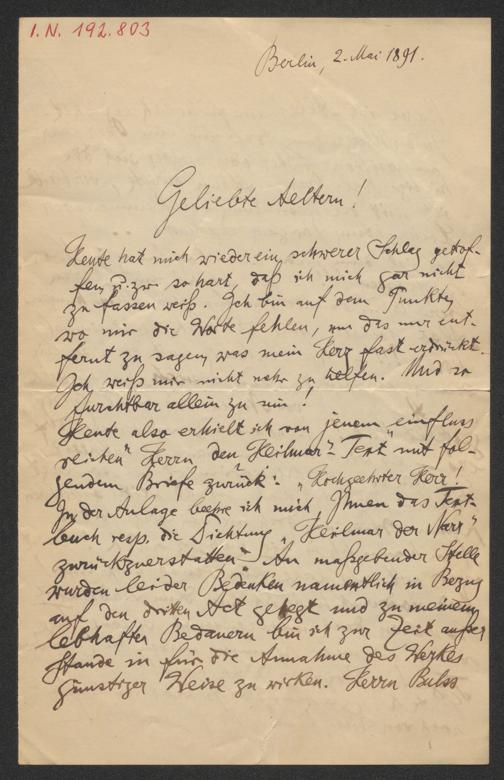 I.N. 192.803
Berlin, 2. Mai 1891.
Geliebte Aeltern!
Heute hat mich wieder ein schwerer Schlag getrof-
fen u. zw. so hart, daß ich mich gar nicht
zu fassen weiß. Ich bin auf dem Punkte,
wo mir die Worte fehlen, um das nur ent-
fernt zu sagen, was mein Herz fast erdrückt.
Ich weiß mir nicht mehr zu helfen. Und so
furchtbar allein zu sein!
Heute also erhielt ich von jenem „einfluss
reichen" Herrn den „Heilmar"-Text mit fol-
gendem Briefe zurück: „Hochgeehrter Herr!
In der Anlage beehre ich mich, Ihnen das Text-
buch resp. die Dichtung „Heilmar der Narr"
zurückzuerstatten. An maßgebender Stelle
wurden leider Bedenken namentlich in Bezug
auf den dritten Act gehegt und zu meinem
lebhaften Bedauern bin ich zur Zeit außer
Stande in für die Annahme des Werkes
günstiger Weise zu wirken. Herrn Bulss